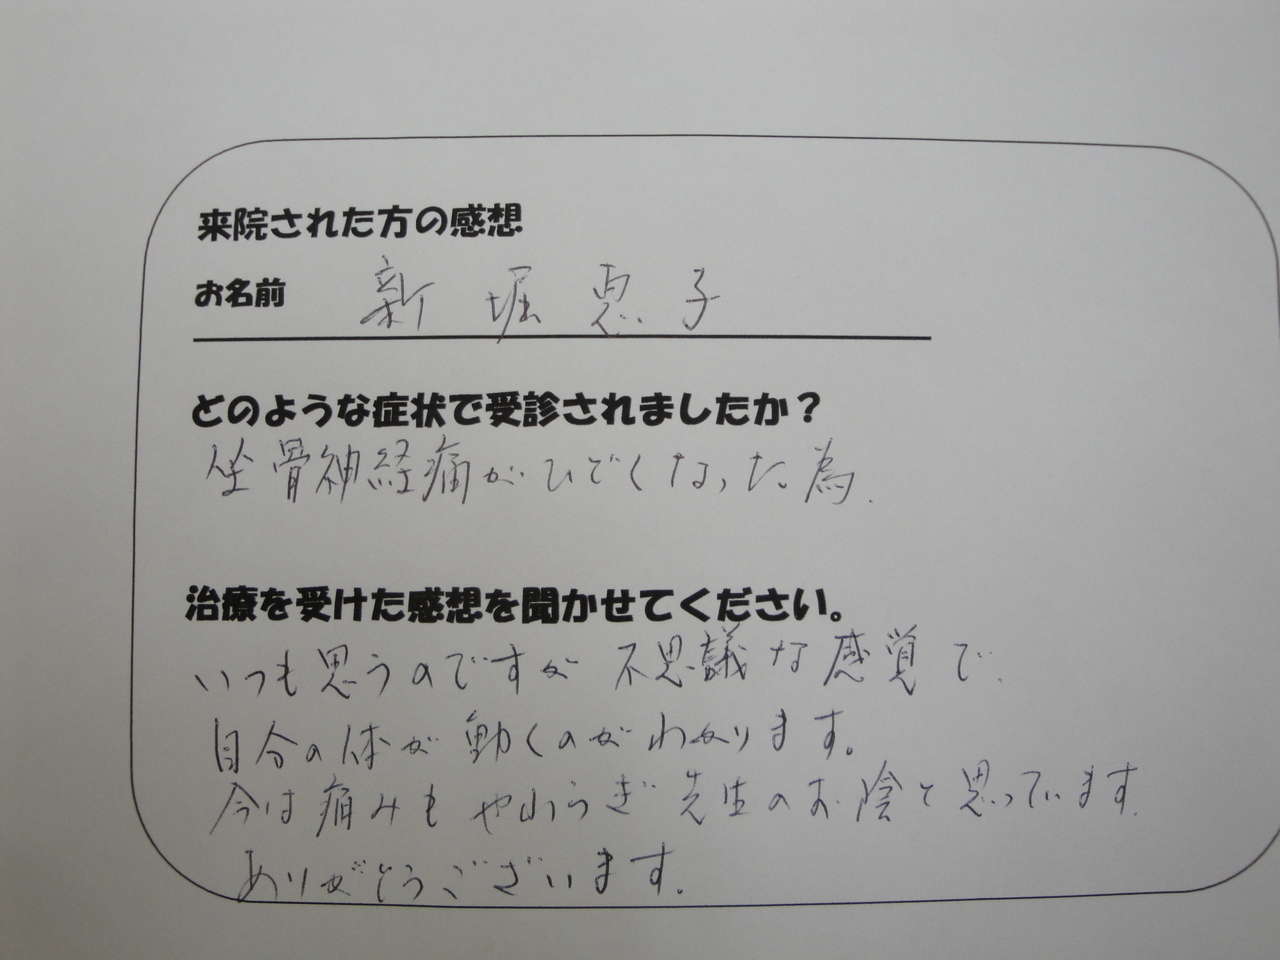 来院された方の感想
お名前 新堀恵子
どのような症状で受診されましたか？
坐骨神経痛がひどくなった為.
治療を受けた感想を聞かせてください。
いつも思うのですが不思議な感覚で.
自分の体が動くのがわかります。
今は痛みもやわらぎ先生のお陰と思っています.
ありがとうございます.